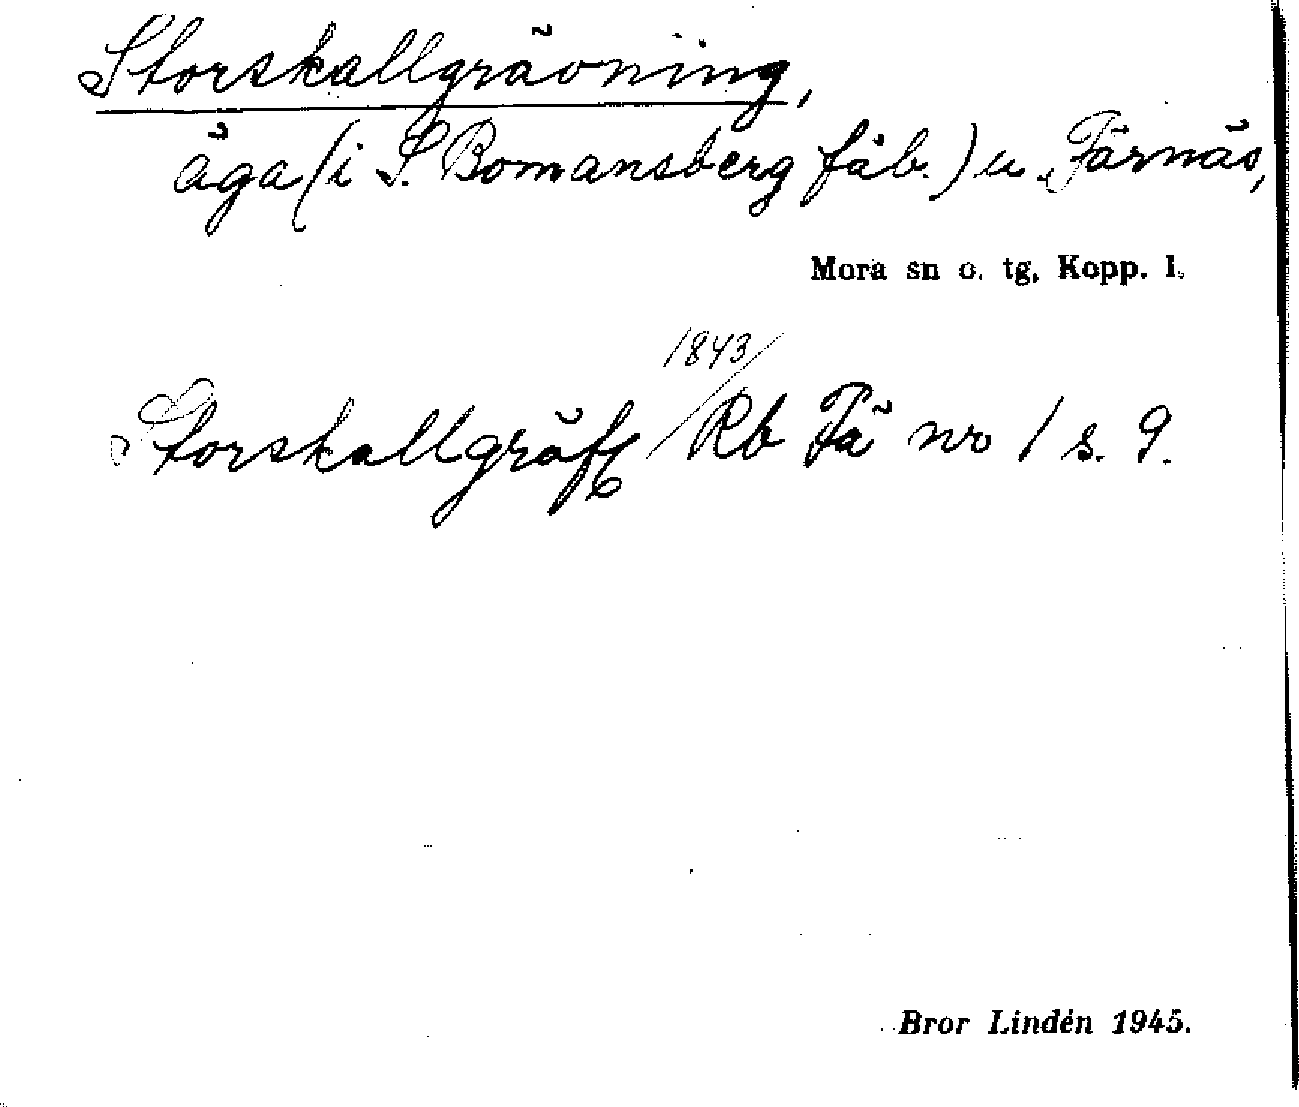 Storskallgrävning,
äga (i S. Bomansberg fäb.) u. Färnäs,
Mora sn o. tg, Kopp. l.
1843
Storskallgräfg / Rb Fä nr 1 s. 9.
Bror Lindén 1945.